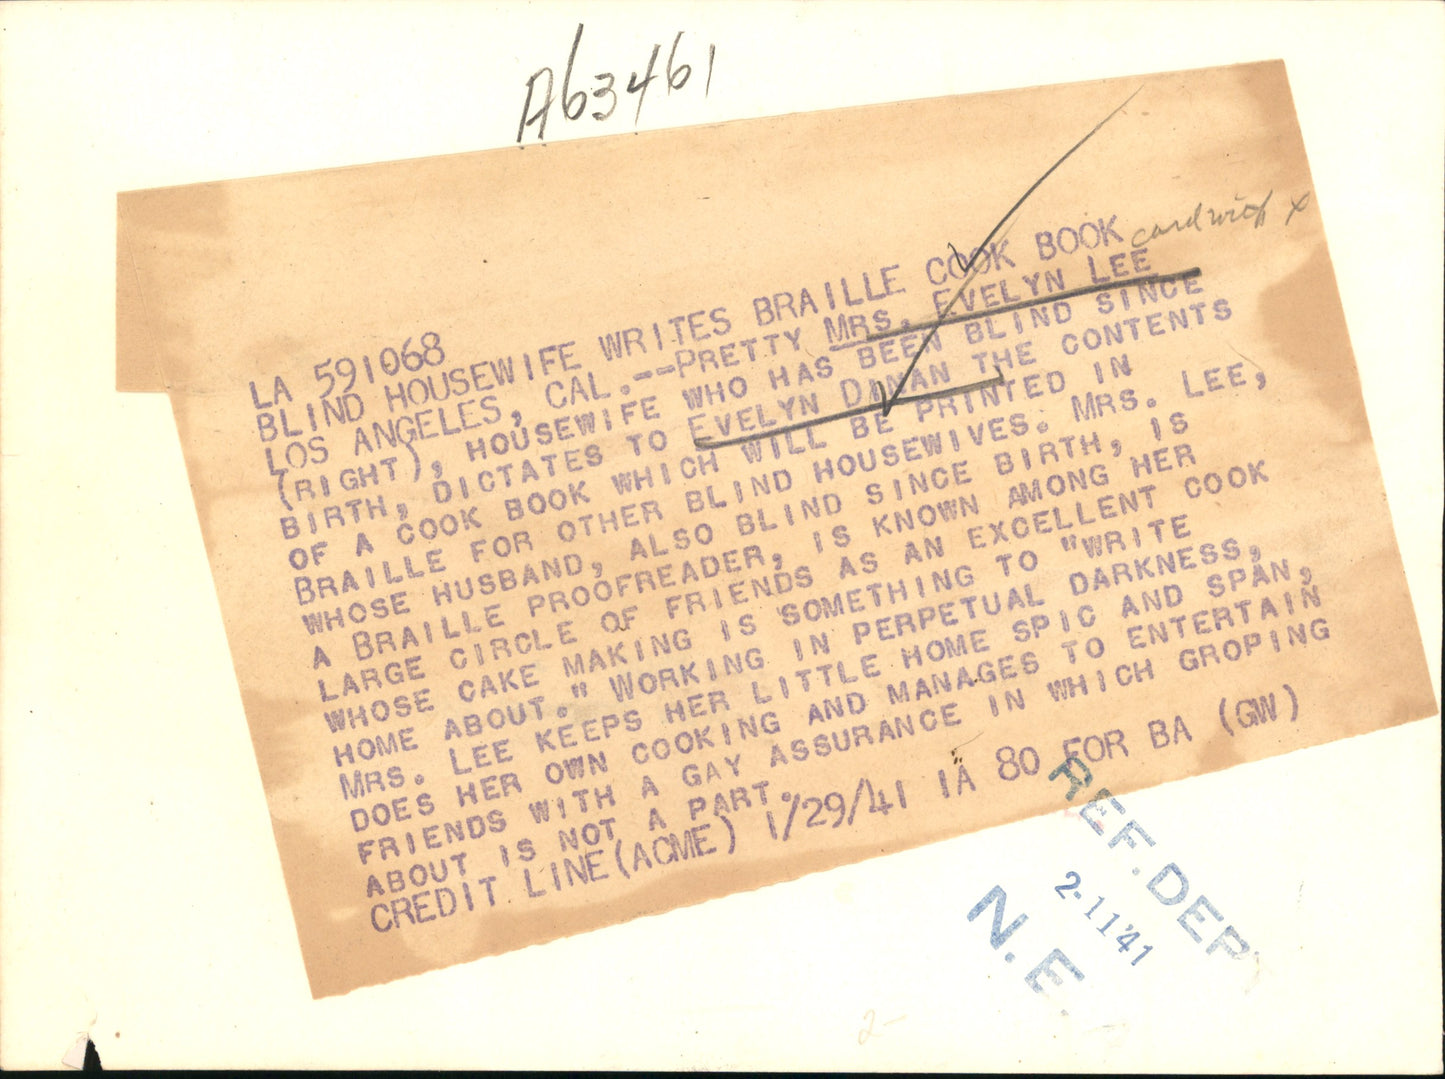 A63461
LA 591068
BLIND HOUSEWIFE WRITES BRAILLE COOK BOOK
LOS ANGELES, CAL.--PRETTY MRS. EVELYN LEE
(RIGHT), HOUSEWIFE WHO HAS BEEN BLIND SINCE
BIRTH, DICTATES TO EVELYN DINAN THE CONTENTS
OF A COOK BOOK WHICH WILL BE PRINTED IN
BRAILLE FOR OTHER BLIND HOUSEWIVES. MRS. LEE,
WHOSE HUSBAND, ALSO BLIND SINCE BIRTH, IS
A BRAILLE PROOFREADER, IS KNOWN AMONG HER
LARGE CIRCLE OF FRIENDS AS AN EXCELLENT COOK
WHOSE CAKE MAKING IS SOMETHING TO "WRITE
HOME ABOUT." WORKING IN PERPETUAL DARKNESS,
MRS. LEE KEEPS HER LITTLE HOME SPIC AND SPAN,
DOES HER OWN COOKING AND MANAGES TO ENTERTAIN
FRIENDS WITH A GAY ASSURANCE IN WHICH GROPING
ABOUT IS NOT A PART.
CREDIT LINE (ACME) 1/29/41 IA 80 FOR BA (GW)
REF. DEPT
2-11 41
N.E.
2-